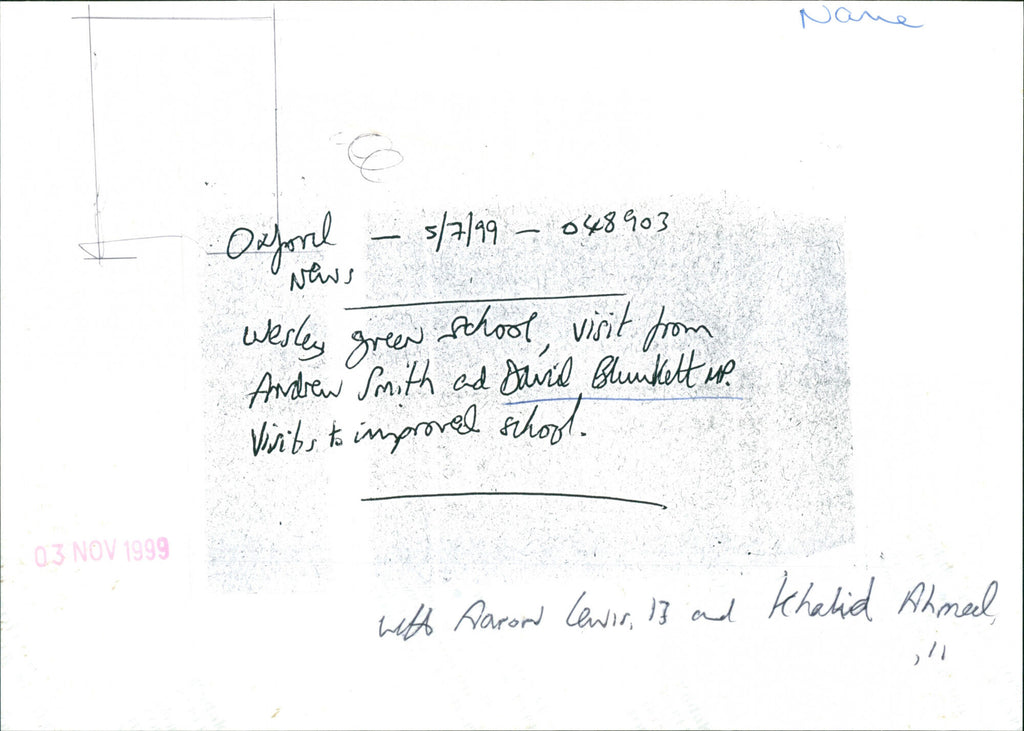 Name
Oxford — 5/7/99 — 048903
News
Wesley green school, visit from
Andrew Smith ad David Blunkett MP.
Visits to improved school.
03 NOV 1999
with Aaron Lewis, 13 and Khalid Ahmed,
, 11